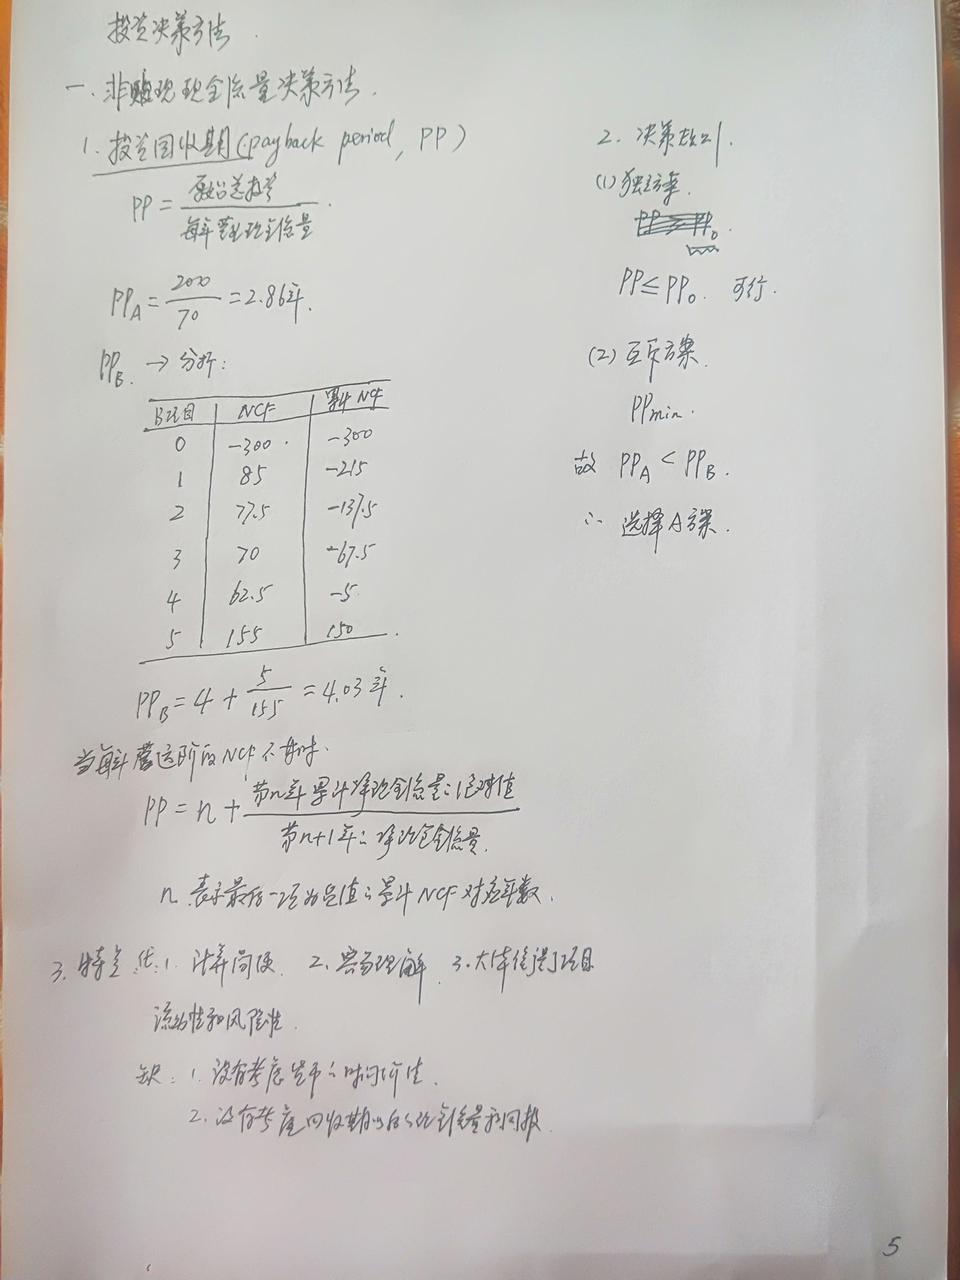 投资决策方法
一、非贴现现金流量决策方法
1. 投资回收期(payback period, PP)
PP = 原始总投资 / 每年营业现金流量
PP_A = 200 / 70 = 2.86年.
PP_B → 分析:
B项目 NCF 累计NCF
0 -300 -300
1 85 -215
2 77.5 -137.5
3 70 -67.5
4 62.5 -5
5 155 150
PP_B = 4 + 5 / 155 = 4.03年.
当每年营运阶段NCF不等时.
PP = n + 第n年累计净现金流量之绝对值 / 第n+1年之净现金流量
n 表示最后一项为负值之累计NCF对应年数.
3. 特点 优: 1. 计算简便 2. 容易理解 3. 大体衡量了项目
流动性和风险性
缺: 1. 没有考虑货币之时间价值.
2. 没有考虑回收期以后之现金流量和回报.
2. 决策规则.
(1) 独立方案.
PP≤PP₀. 可行.
(2) 互斥方案.
PPmin.
故 PP_A < PP_B.
∴ 选择A方案.
5